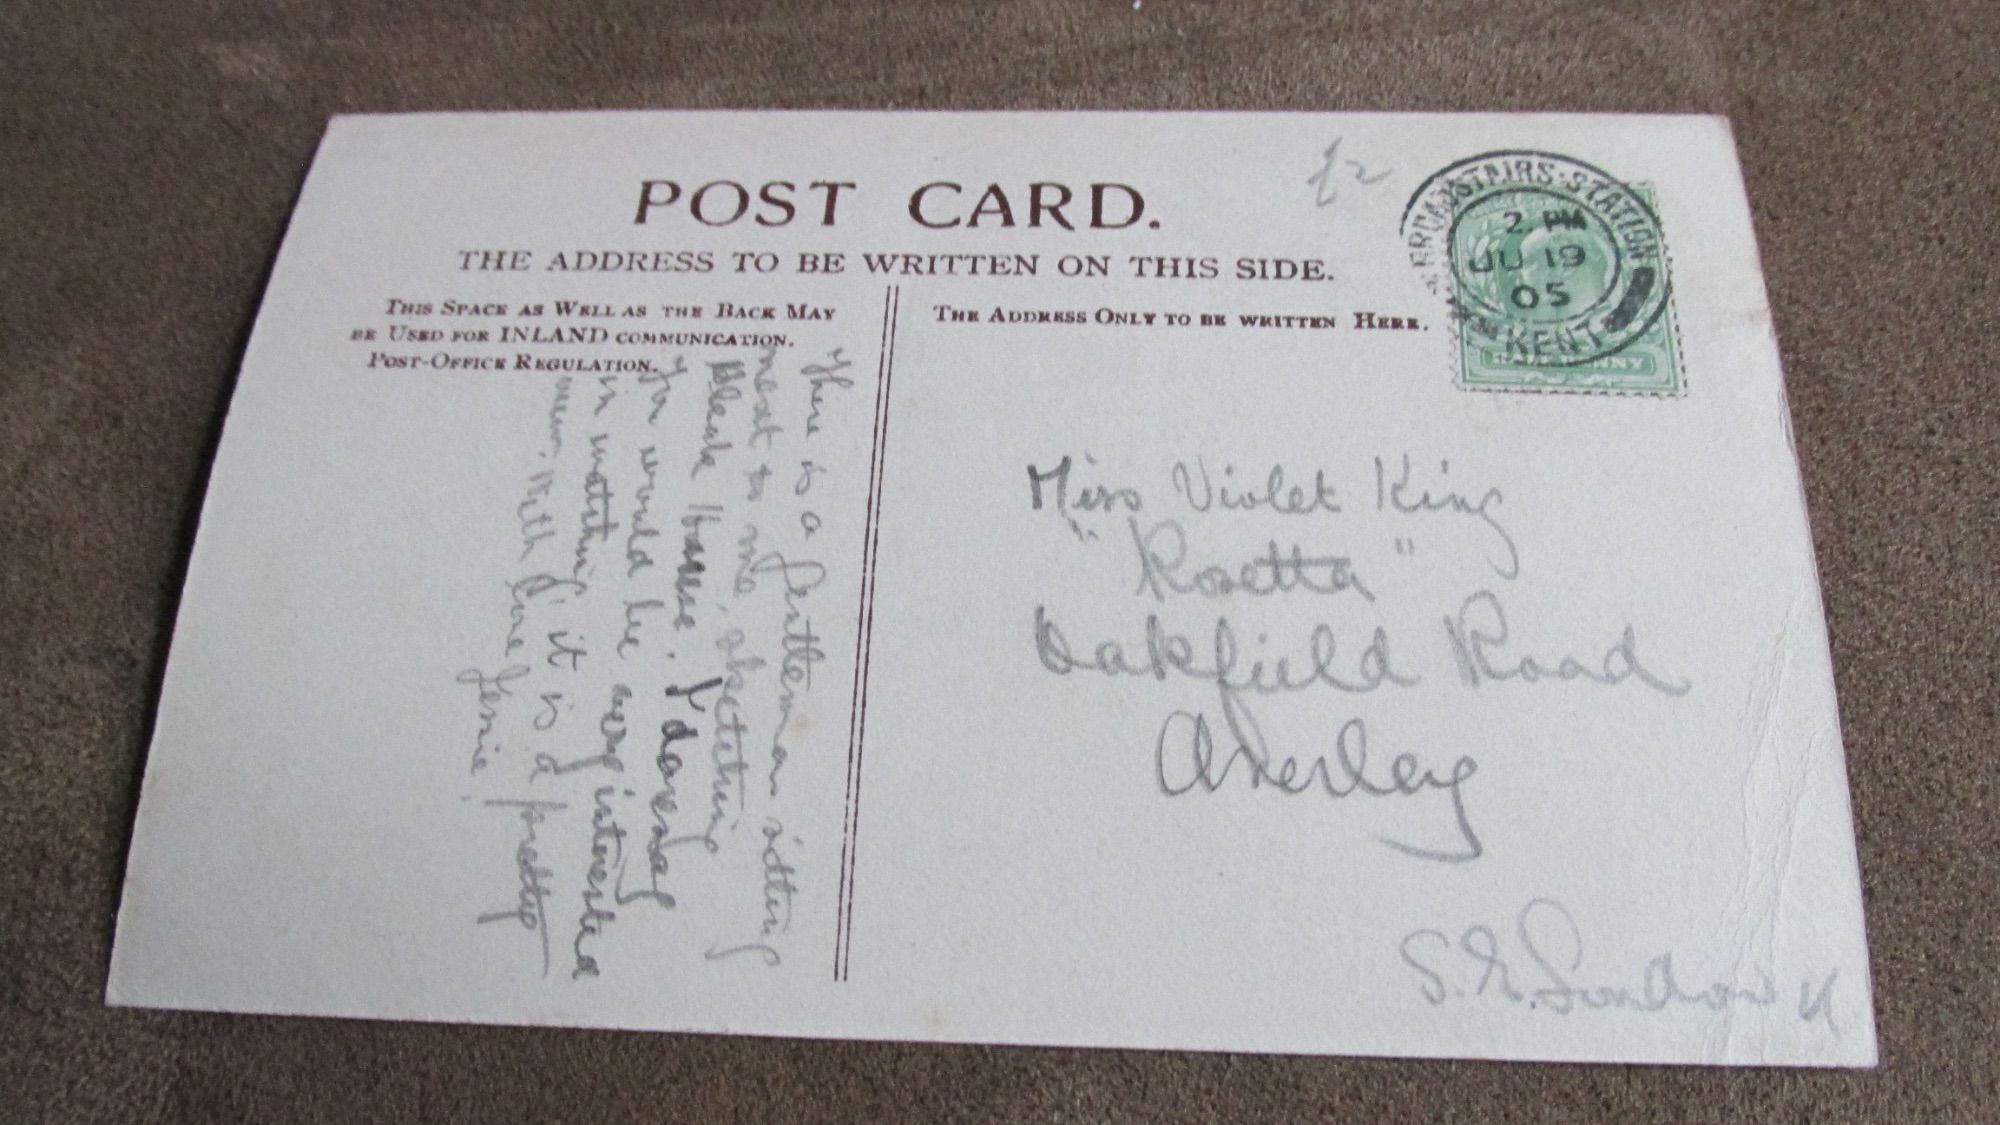 POST CARD.
THE ADDRESS TO BE WRITTEN ON THIS SIDE.
THIS SPACE AS WELL AS THE BACK MAY
BE USED FOR INLAND COMMUNICATION.
POST-OFFICE REGULATION.
THE ADDRESS ONLY TO BE WRITTEN HERE.
£2
BROADSTAIRS·STATION
2. PM
JU 19
05
KENT
HALFPENNY
There is a Gentleman sitting
next to me, sketching
Bleak House. I daresay
You would be very interested
in watching it it is a pretty
view. With love Jessie.
Miss Violet King
"Rosetta"
Oakfield Road
Anerley
S.E. London